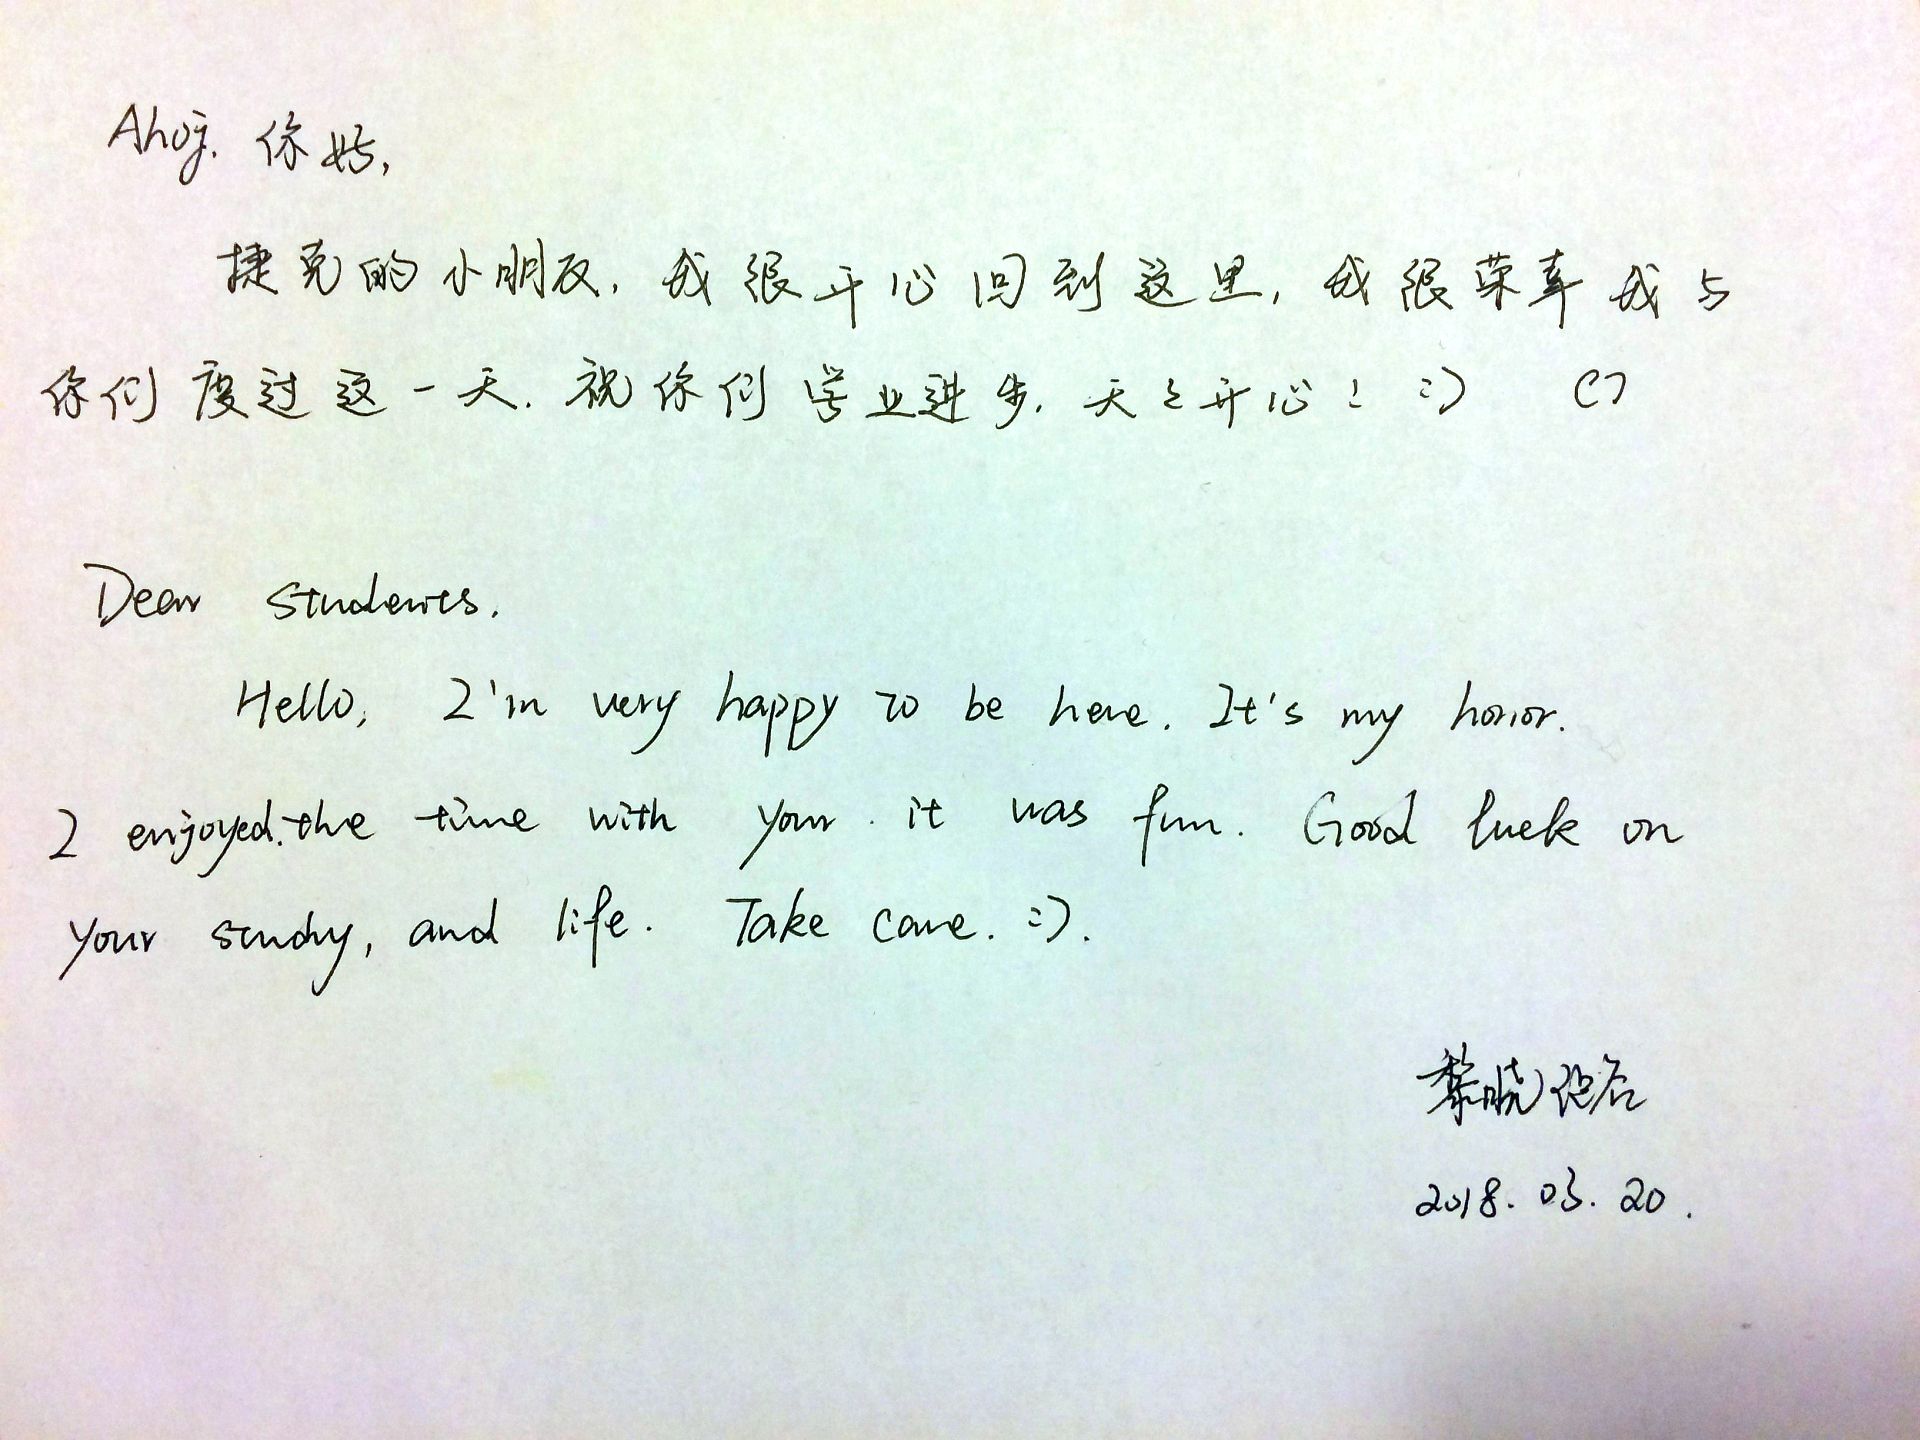 Ahoj. 你好,
捷克的小朋友, 我很开心回到这里, 我很荣幸我与
你们度过这一天. 祝你们学业进步, 天天开心! :)
Dear students.
Hello, I'm very happy to be here. It's my honor.
I enjoyed.the time with your. it was fun. Good luck on
your study, and life. Take care. :).
黎晓
2018. 03. 20.